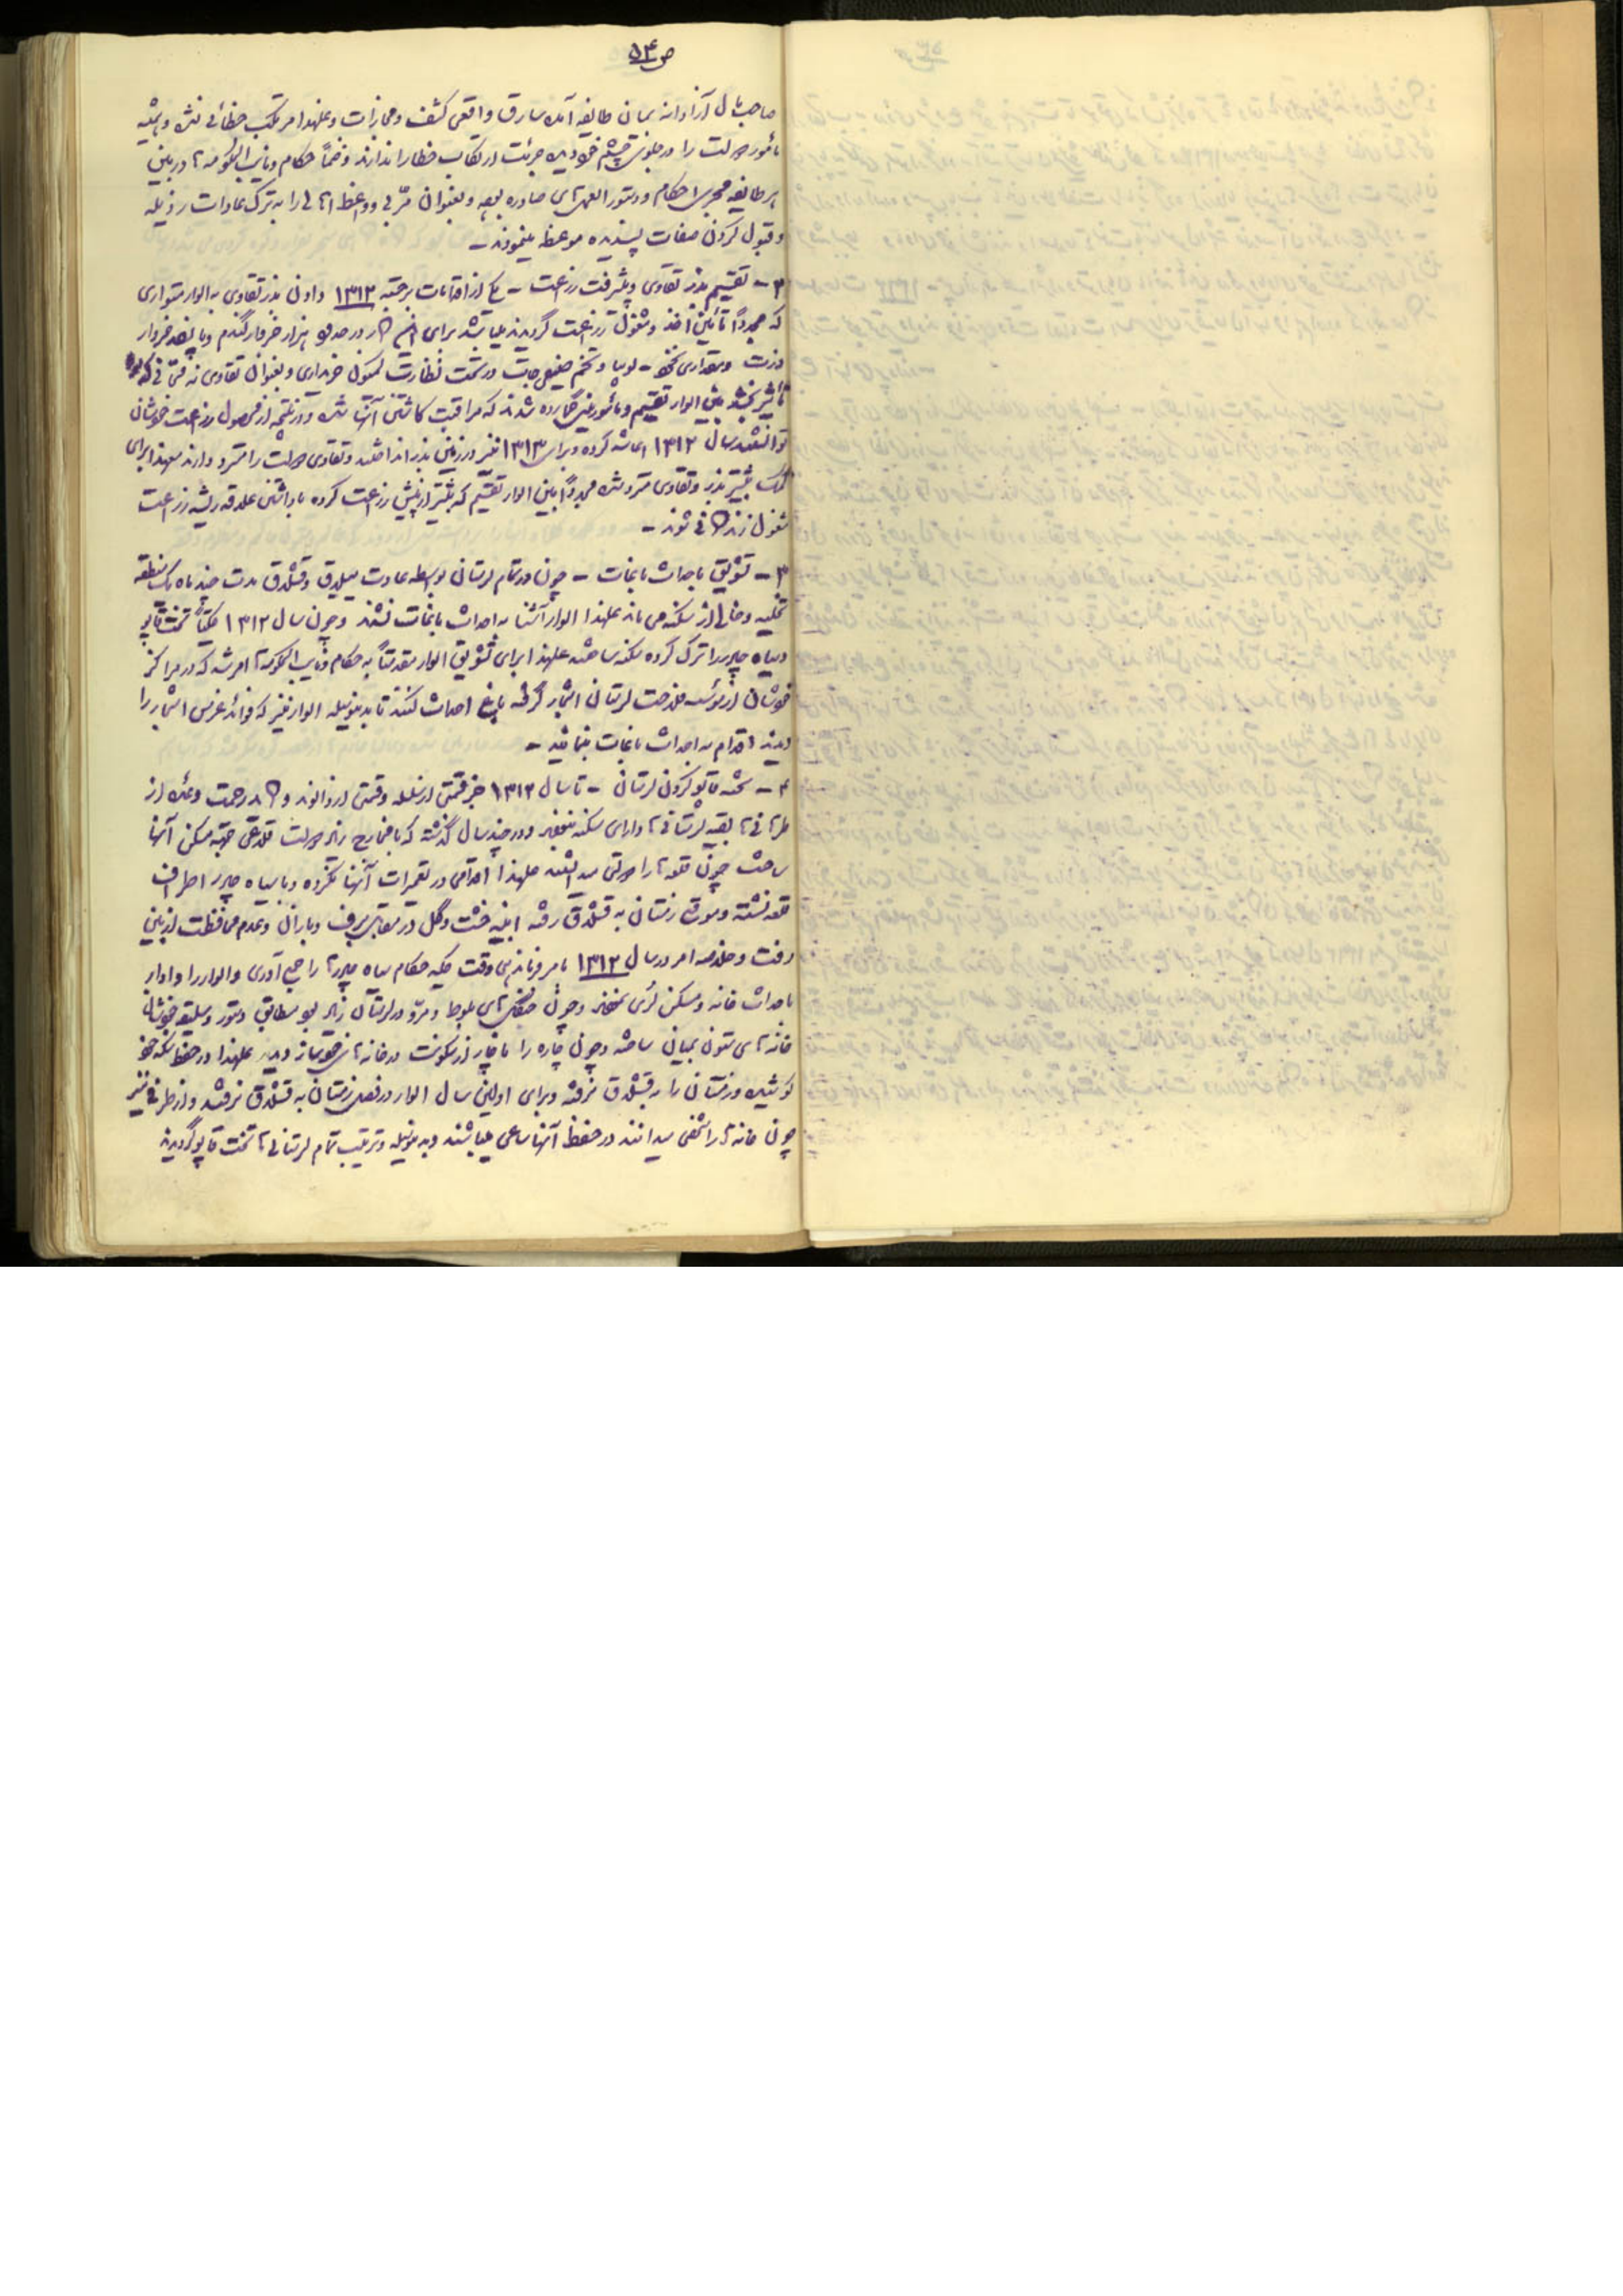 ص ۵۴
صاحب مال آزادانه بمیان طایفه آمده سارق واقعی کشف و مجازات و علیهذا مرتکب خطائی نشده و همیشه
مأمور دولت را در جلوی چشم خود دیده جرئت ارتکاب خطا را ندارند و ضمناً حکام و نایب الحکومه ها در بین
هر طایفه مجری احکام و دستورالعمل های صادره بوده و بعنوان مربی و واعظ اهالی را به ترک عادات رذیله
و قبول کردن صفات پسندیده موعظه مینمودند -
۲ - تقسیم بذر تقاوی و پیشرفت زراعت - یکی از اقدامات برجسته ۱۳۱۲ دادن بذر تقاوی به الوار متواری
که مجدداً تأمین اخذ و مشغول زراعت گردیدند میباشد برای این کار در حدود هزار خروار گندم و پانصد خروار
ذرت و مقداری نخود - لوبیا و تخم صیفی جات در تحت نظارت خریداری و بعنوان تقاوی
بین الوار تقسیم و مأمورینی گمارده شدند که مراقبت کاشتن آنها شده و در نتیجه از محصول زراعت خودشان
توانستند سال ۱۳۱۲ اعاشه کرده و برای ۱۳۱۳ نیز در زمین بذر انداختند و تقاوی دولت را مسترد دارند معهذا برای
کمک بیشتر بذر و تقاوی مسترد شده مجدداً بین الوار تقسیم که بیشتر از پیش زراعت کرده با داشتن علاقه ریشه زراعت
مشغول زندگانی شوند -
۳ - تشویق باحداث باغات - چون در تمام لرستان بواسطه عادت ییلاق و قشلاق مدت چند ماه یک منطقه
تخلیه و خالی از سکنه می ماند علیهذا الوار آشنا به احداث باغات نشدند و چون سال ۱۳۱۲ تخت قاپو
و سیاه چادر را ترک کرده سکنه ساختند علیهذا برای تشویق الوار مقدمتاً به حکام و نایب الحکومه ها امر شد که در مراکز
خودشان از مؤسسه فلاحت لرستان اشجار گرفته باغ احداث کنند تا بدینوسیله الوار نیز که فوائد غرس اشجار را
دیدند اقدام به احداث باغات بنمایند -
۴ - تخته قاپو کردن لرستان - تا سال ۱۳۱۲ جز قسمتی از سلسله و قسمتی از دالوند و کارحمت و عده از
طرهانی ها بقیه لرستانی ها دارای سکنه نبودند و در چند سال گذشته که با مخارج زیاد دولت قلاعی جهت مسکن آنها
ساخت چون قلعه ها را دولتی میدانستند علیهذا اقدامی در تعمیرات آنها نکرده و با سیاه چادر اطراف
قلعه نشسته و موقع زمستان به قشلاق رفته ابنیه خشت و گل در مقابل برف و باران و عدم محافظت از بین
رفت و خلاصه امر در سال ۱۳۱۲ بامر فرماندهی وقت کلیه حکام سیاه چادرها را جمع آوری و الوار را وادار
باحداث خانه و مسکن کردی نمودند و چون جنگلهای بلوط و مرو در لرستان زیاد بود مطابق دستور و سلیقه خودشان
خانه های ستون میانی ساخته و چون چاره را ناچار از سکونت در خانه های خودساز دیدند علیهذا در حفظ سکنه خود
کوشیده و زمستان را به قشلاق نرفته و برای اولین سال الوار در فصل زمستان به قشلاق نرفتند و از طرفی نیز
چون خانه ها را شخصی میدانند در حفظ آنها ساعی میباشند و بدینوسیله و ترتیب تمام لرستانی ها تخت قاپو گردیدند